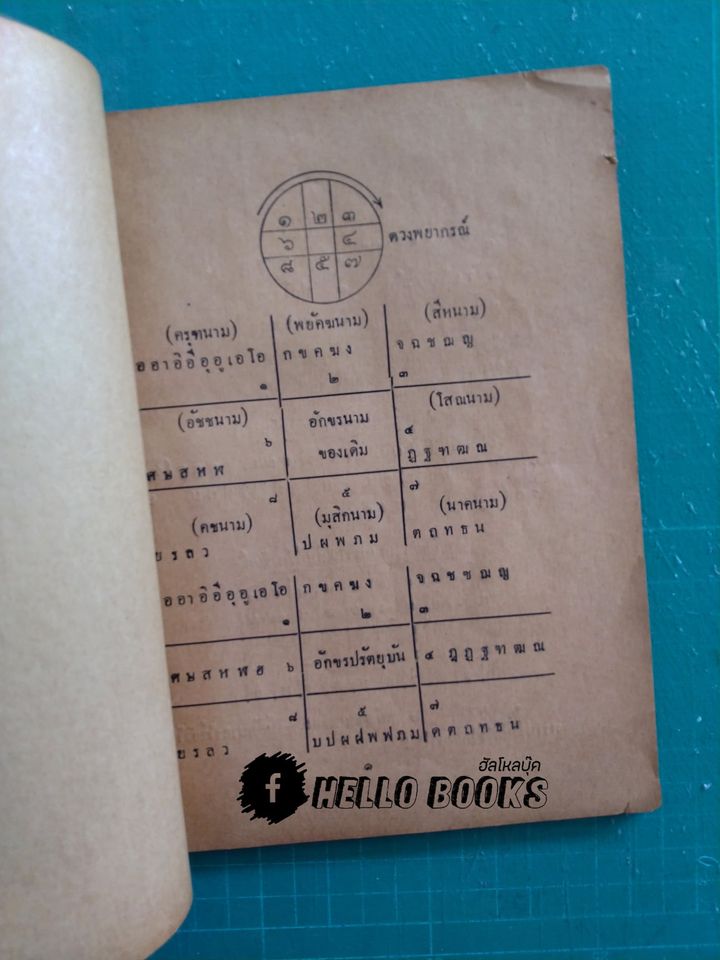 ๑ ๒ ๓
๖ ๔
๘ ๕ ๗
ดวงพยากรณ์
(ครุฑนาม) (พยัคฆนาม) (สีหนาม)
ออาอิอีอุอูเอโอ กขคฆง จฉชฌญ
๑ ๒ ๓
(อัชชนาม) อักขรนาม (โสณนาม)
๖ ของเดิม ๔
ศษสหฬ ฏฐฑฒณ
๘ ๕ ๗
(คชนาม) (มุสิกนาม) (นาคนาม)
ยรลว ปผพภม ตถทธน
ออาอิอีอุอูเอโอ กขคฆง จฉชซฌญ
๑ ๒ ๓
ศษสหฬฮ ๖ อักขรปรัตยุบัน ๔ ฎฏฐฑฒณ
๘ ๕ ๗
ยรลว บปผฝพฟภม ดตถทธน
ฮัลโหลบุ๊ค
f HELLO BOOKS